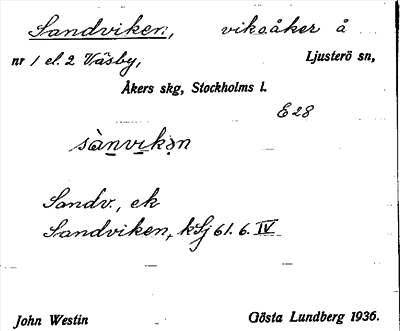 Sandviken, viksåker å
nr 1 el. 2 Väsby, Ljusterö sn,
Åkers skg, Stockholms l.
E 28
sànvikən
Sandv., ek
Sandviken, kSj 61. 6. IV
John Westin Gösta Lundberg 1936.